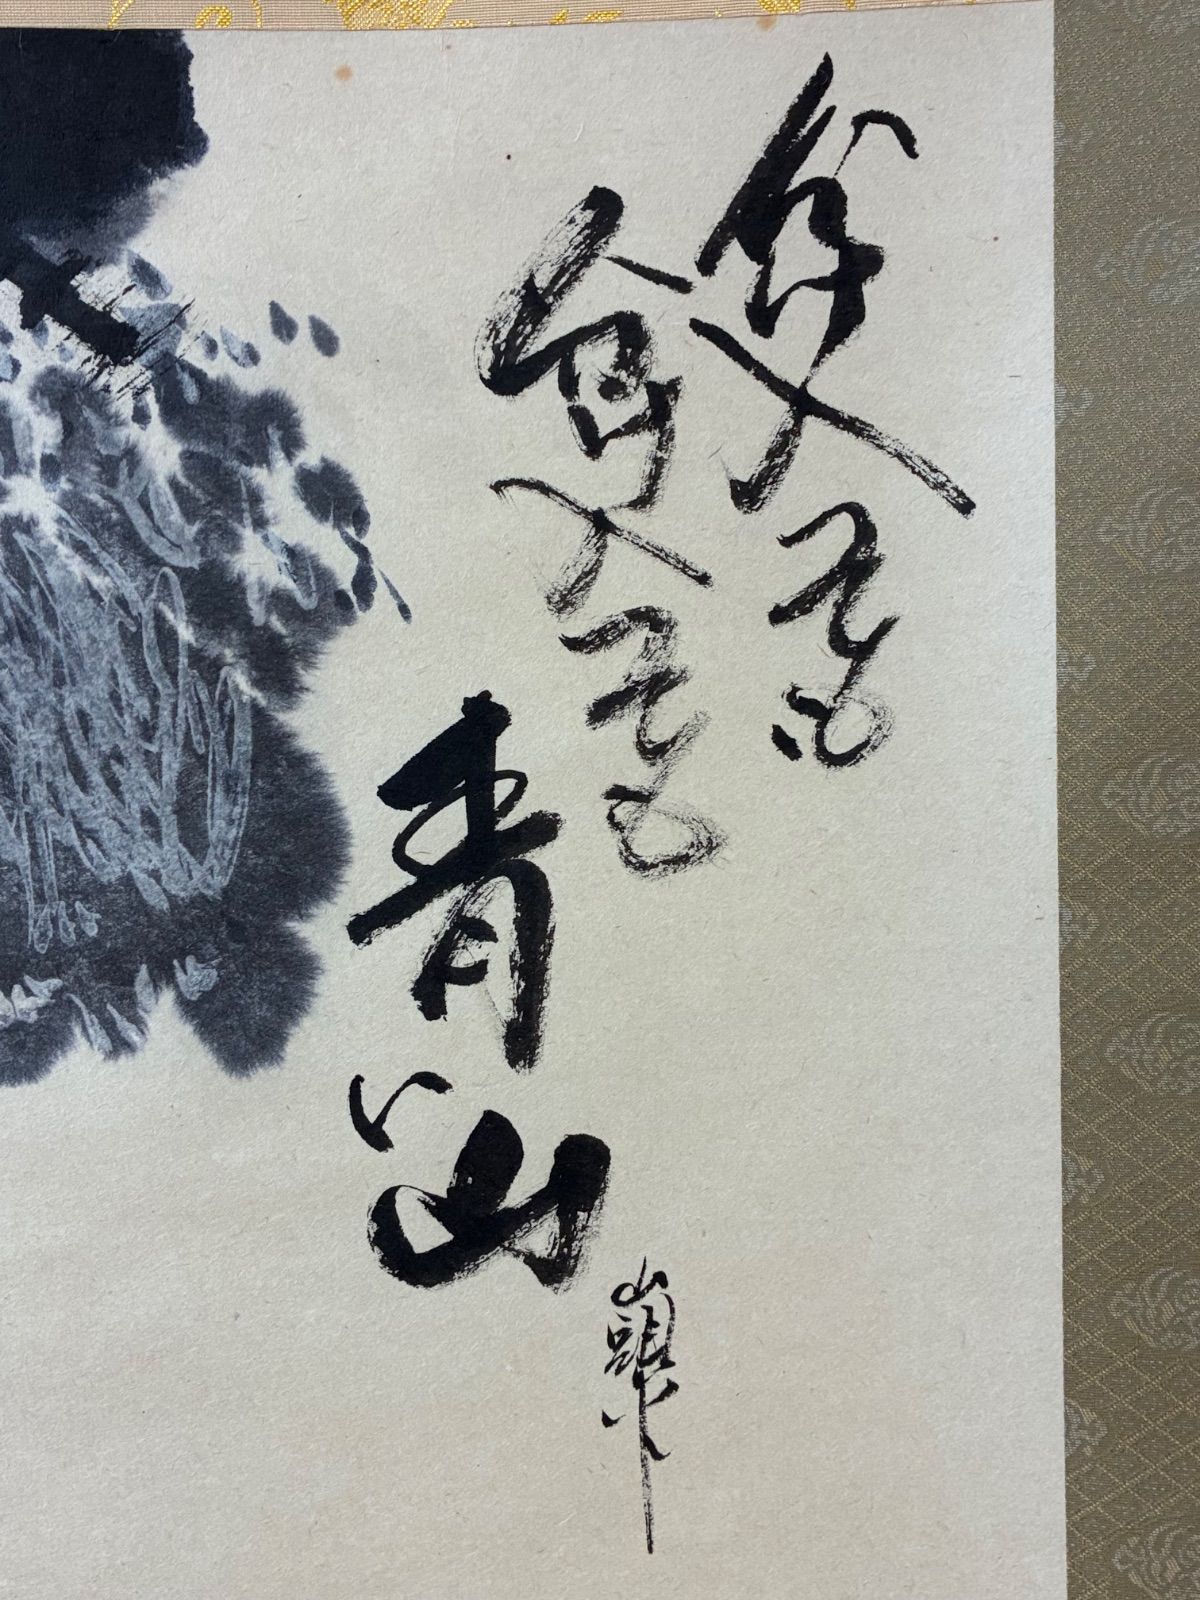 分け入つても
分け入つても
青い山
山頭火